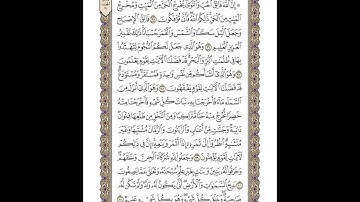 ۞ إِنَّ ٱللَّهَ فَالِقُ ٱلْحَبِّ وَٱلنَّوَىٰ ۖ يُخْرِجُ ٱلْحَيَّ مِنَ ٱلْمَيِّتِ وَمُخْرِجُ
ٱلْمَيِّتِ مِنَ ٱلْحَيِّ ۚ ذَٰلِكُمُ ٱللَّهُ ۖ فَأَنَّىٰ تُؤْفَكُونَ ٩٥ فَالِقُ ٱلْإِصْبَاحِ
وَجَعَلَ ٱلَّيْلَ سَكَنًا وَٱلشَّمْسَ وَٱلْقَمَرَ حُسْبَانًا ۚ ذَٰلِكَ تَقْدِيرُ
ٱلْعَزِيزِ ٱلْعَلِيمِ ٩٦ وَهُوَ ٱلَّذِى جَعَلَ لَكُمُ ٱلنُّجُومَ لِتَهْتَدُوا۟
بِهَا فِى ظُلُمَٰتِ ٱلْبَرِّ وَٱلْبَحْرِ ۗ قَدْ فَصَّلْنَا ٱلْءَايَٰتِ لِقَوْمٍ يَعْلَمُونَ
٩٧ وَهُوَ ٱلَّذِىٓ أَنشَأَكُم مِّن نَّفْسٍ وَٰحِدَةٍ فَمُسْتَقَرٌّ وَمُسْتَوْدَعٌ ۗ
قَدْ فَصَّلْنَا ٱلْءَايَٰتِ لِقَوْمٍ يَفْقَهُونَ ٩٨ وَهُوَ ٱلَّذِىٓ أَنزَلَ مِنَ
ٱلسَّمَآءِ مَآءً فَأَخْرَجْنَا بِهِۦ نَبَاتَ كُلِّ شَىْءٍ فَأَخْرَجْنَا مِنْهُ
خَضِرًا نُّخْرِجُ مِنْهُ حَبًّا مُّتَرَاكِبًا وَمِنَ ٱلنَّخْلِ مِن طَلْعِهَا قِنْوَانٌ
دَانِيَةٌ وَجَنَّٰتٍ مِّنْ أَعْنَابٍ وَٱلزَّيْتُونَ وَٱلرُّمَّانَ مُشْتَبِهًا وَغَيْرَ
مُتَشَٰبِهٍ ۗ ٱنظُرُوٓا۟ إِلَىٰ ثَمَرِهِۦٓ إِذَآ أَثْمَرَ وَيَنْعِهِۦٓ ۚ إِنَّ فِى ذَٰلِكُمْ
لَءَايَٰتٍ لِّقَوْمٍ يُؤْمِنُونَ ٩٩ وَجَعَلُوا۟ لِلَّهِ شُرَكَآءَ ٱلْجِنَّ وَخَلَقَهُمْ ۖ
وَخَرَقُوا۟ لَهُۥ بَنِينَ وَبَنَٰتٍۭ بِغَيْرِ عِلْمٍ ۚ سُبْحَٰنَهُۥ وَتَعَٰلَىٰ عَمَّا يَصِفُونَ
١٠٠ بَدِيعُ ٱلسَّمَٰوَٰتِ وَٱلْأَرْضِ ۖ أَنَّىٰ يَكُونُ لَهُۥ وَلَدٌ وَلَمْ تَكُن لَّهُۥ
صَٰحِبَةٌ ۖ وَخَلَقَ كُلَّ شَىْءٍ ۖ وَهُوَ بِكُلِّ شَىْءٍ عَلِيمٌ ١٠١